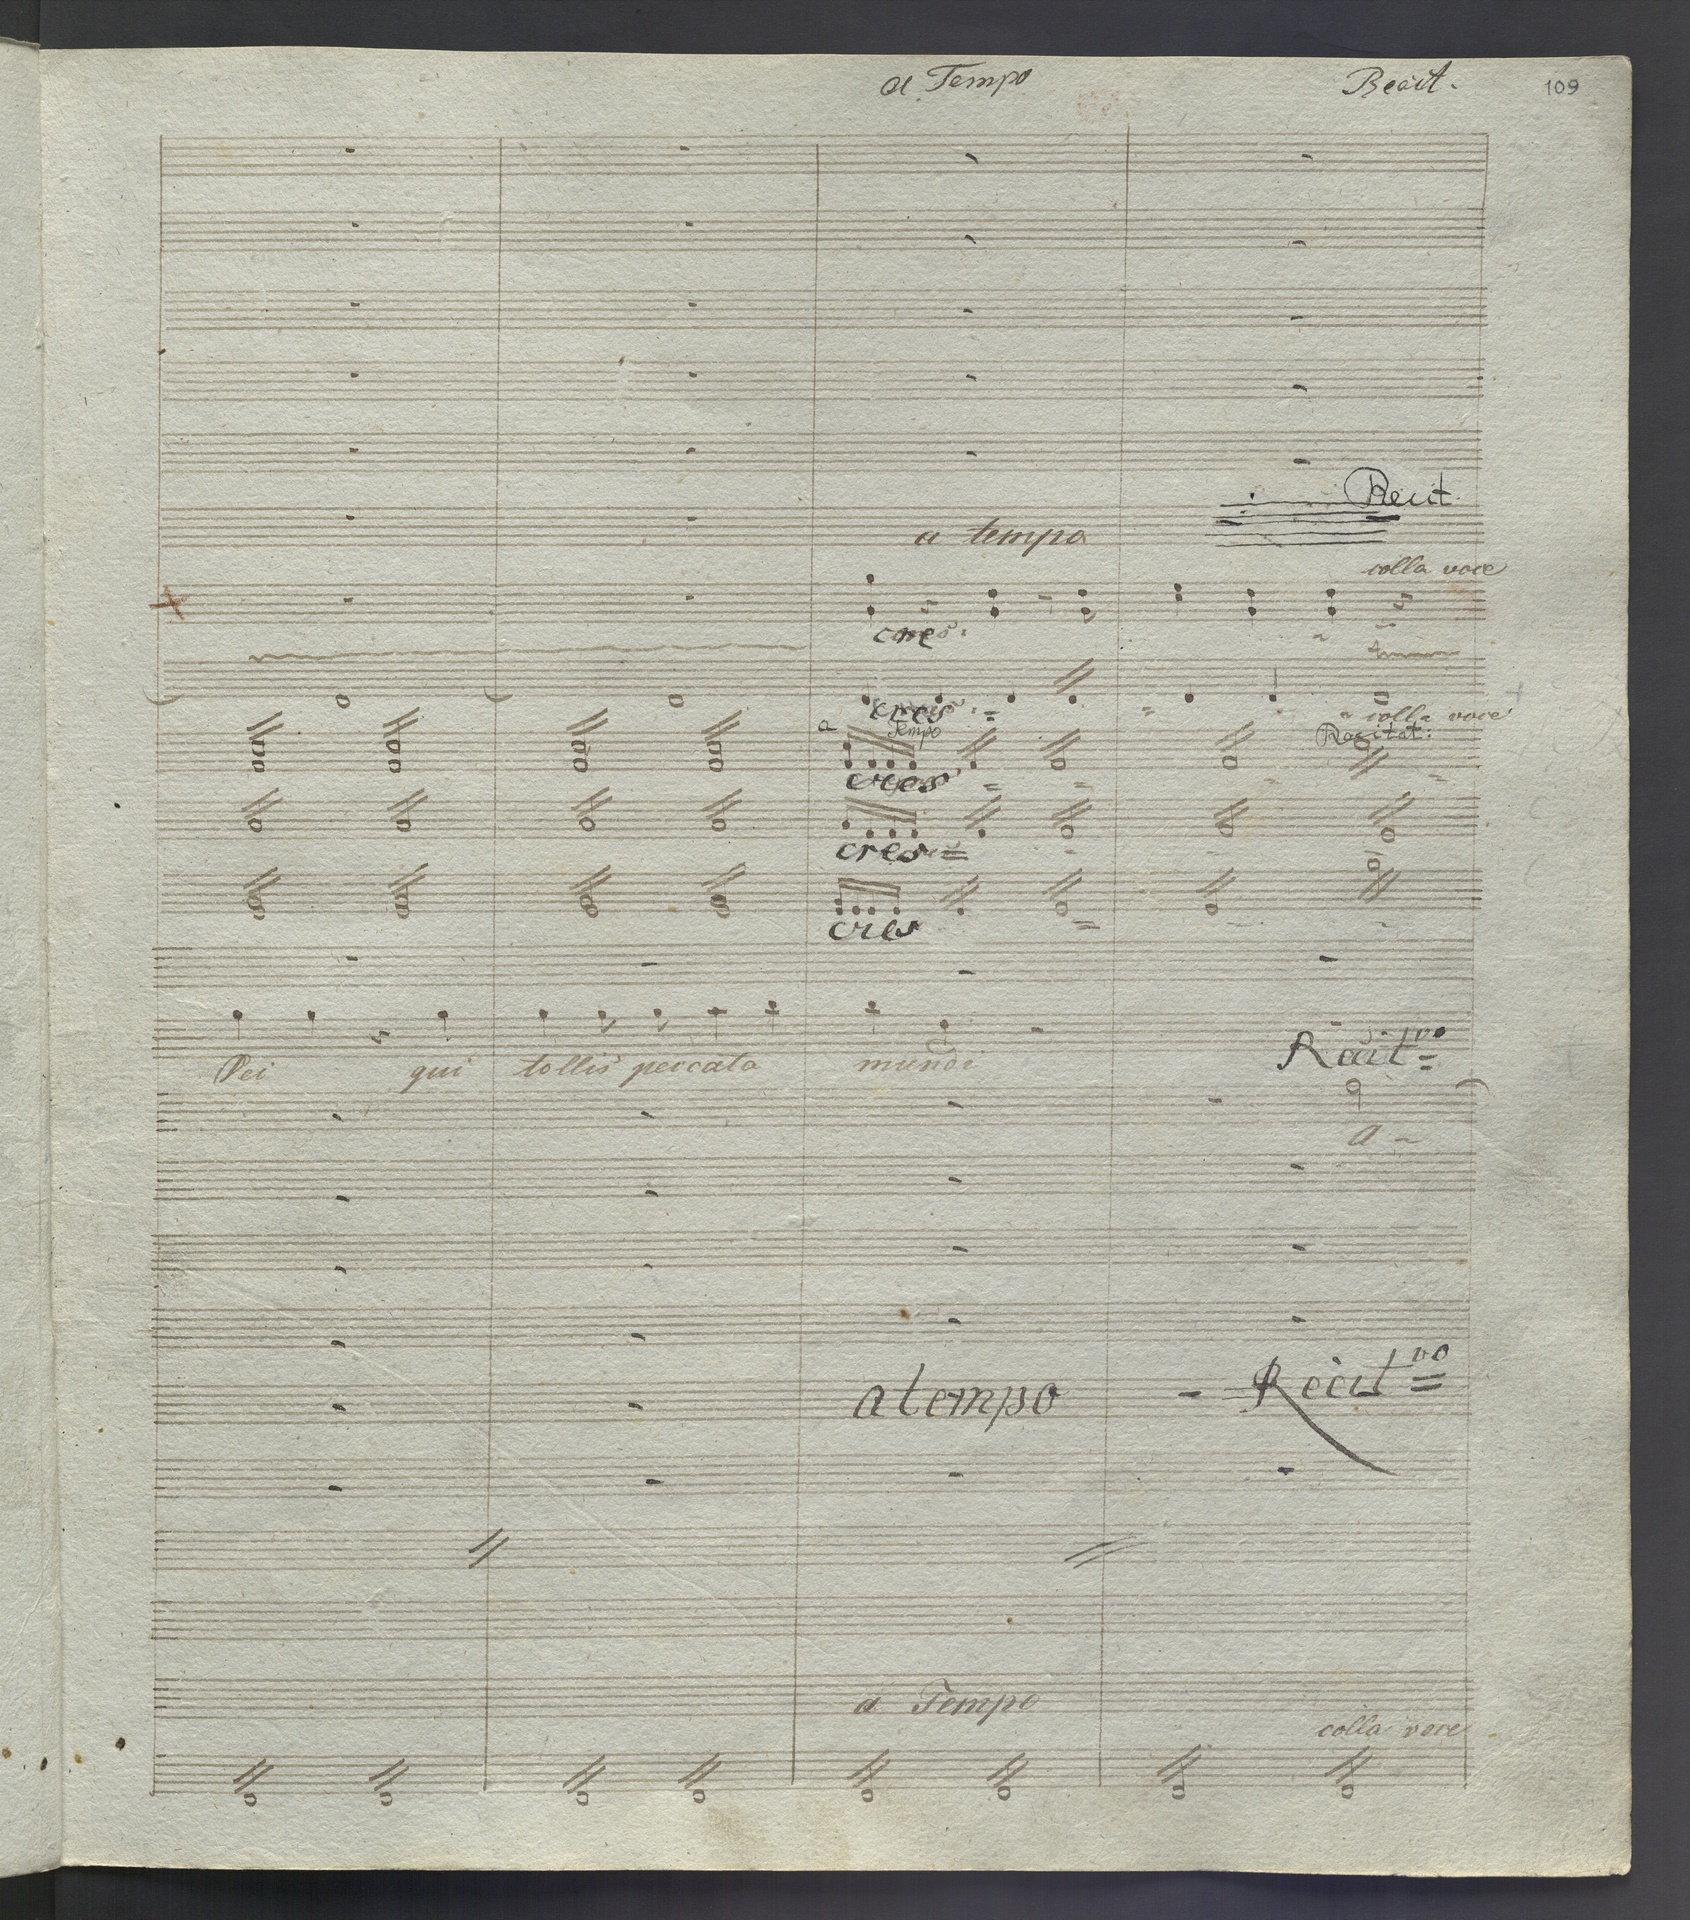 a Tempo Recit. 109
Recit
a tempo
colla voce
cres.
cres
colla voce
a Tempo Recitat:
cres
cres =
cres
Recit vo =
Dei qui tollis peccata mundi
a -
a tempo - Recit vo =
a Tempo
colla voce